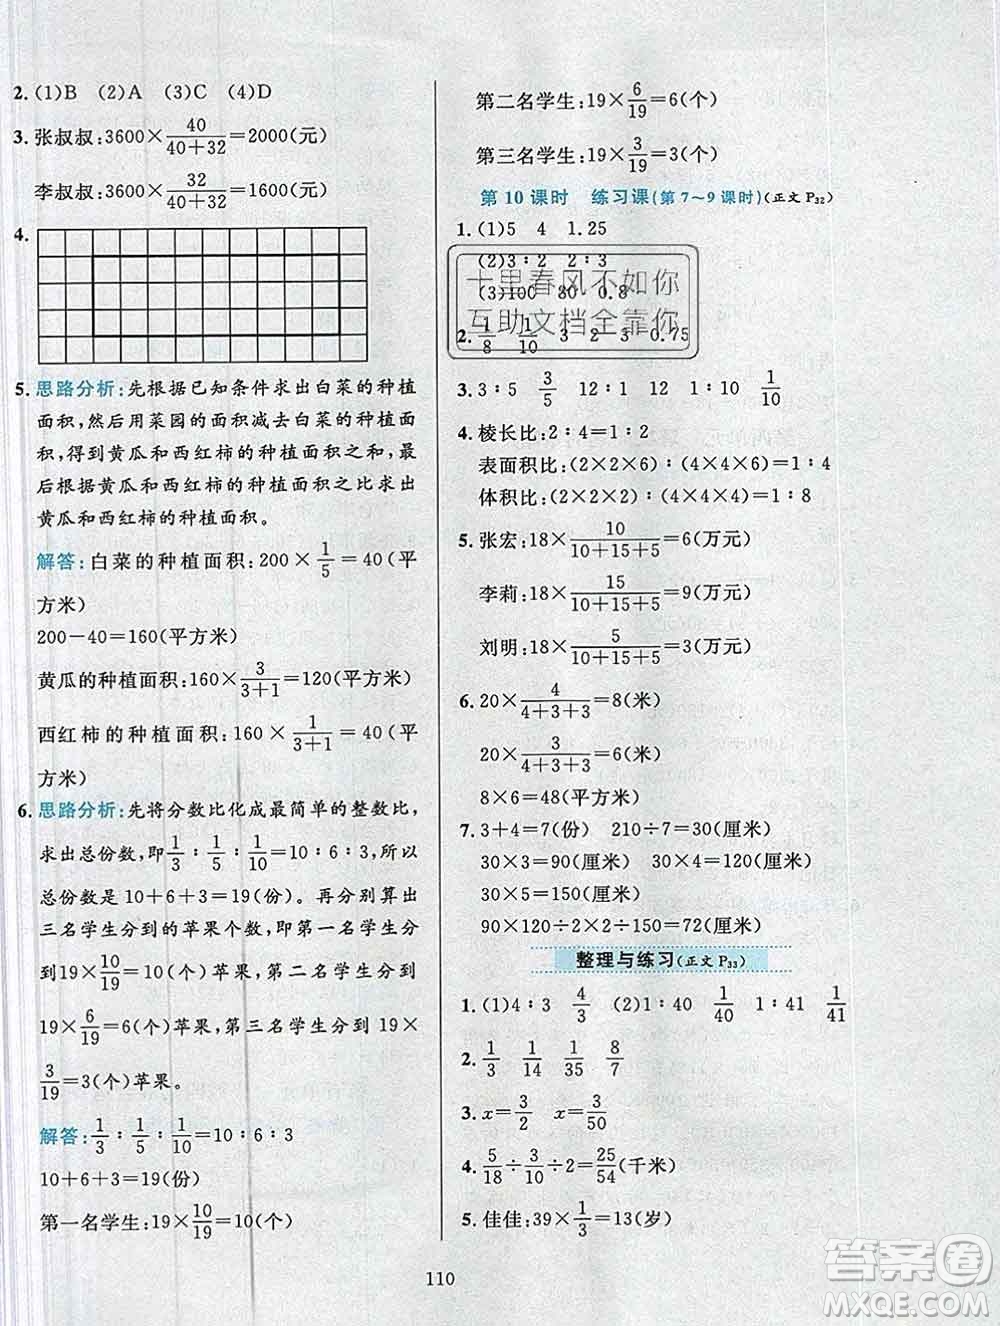 2. (1)B (2)A (3)C (4)D
3. 张叔叔:3600×40/(40+32)=2000(元)
李叔叔:3600×32/(40+32)=1600(元)
4.
5. 思路分析:先根据已知条件求出白菜的种植
面积,然后用菜园的面积减去白菜的种植面
积,得到黄瓜和西红柿的种植面积之和,最
后根据黄瓜和西红柿的种植面积之比求出
黄瓜和西红柿的种植面积。
解答:白菜的种植面积:200×1/5=40(平
方米)
200-40=160(平方米)
黄瓜的种植面积:160×3/(3+1)=120(平方米)
西红柿的种植面积:160×1/(3+1)=40(平
方米)
6. 思路分析:先将分数比化成最简单的整数比,
求出总份数,即1/3∶1/5∶1/10=10∶6∶3,所以
总份数是10+6+3=19(份)。再分别算出
三名学生分到的苹果个数,即第一名学生分
到19×10/19=10(个)苹果,第二名学生分到
19×6/19=6(个)苹果,第三名学生分到19×
3/19=3(个)苹果。
解答:1/3∶1/5∶1/10=10∶6∶3
10+6+3=19(份)
第一名学生:19×10/19=10(个)
第二名学生:19×6/19=6(个)
第三名学生:19×3/19=3(个)
第10课时 练习课(第7~9课时)(正文P32)
1. (1)5 4 1.25
(2)3∶2 2∶3
(3)100 80 0.8
十里春风不如你
互助文档全靠你
2. 1/8 1/10 3 2 3 0.75
3. 3∶5 3/5 12∶1 1∶10 1/10
4. 棱长比:2∶4=1∶2
表面积比:(2×2×6)∶(4×4×6)=1∶4
体积比:(2×2×2)∶(4×4×4)=1∶8
5. 张宏:18×10/(10+15+5)=6(万元)
李莉:18×15/(10+15+5)=9(万元)
刘明:18×5/(10+15+5)=3(万元)
6. 20×4/(4+3+3)=8(米)
20×3/(4+3+3)=6(米)
8×6=48(平方米)
7. 3+4=7(份) 210÷7=30(厘米)
30×3=90(厘米) 30×4=120(厘米)
30×5=150(厘米)
90×120÷2×2÷150=72(厘米)
整理与练习(正文P33)
1. (1)4∶3 4/3 (2)1∶40 1/40 1∶41 1/41
2. 1/3 1/14 1/35 8/7
3. x=3/2 x=3/50
4. 5/18÷3/10÷2=25/54(千米)
5. 佳佳:39×1/3=13(岁)
110
答案圈
MXQE.COM